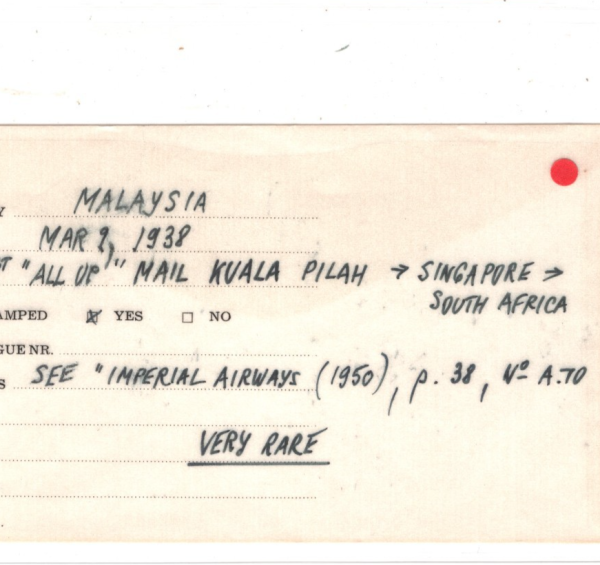 Y MALAYSIA
MAR 2, 1938
T "ALL UP" MAIL KUALA PILAH → SINGAPORE →
SOUTH AFRICA
AMPED ☒ YES ☐ NO
GUE NR.
S SEE "IMPERIAL AIRWAYS (1950), p. 38, Nº A.70
VERY RARE